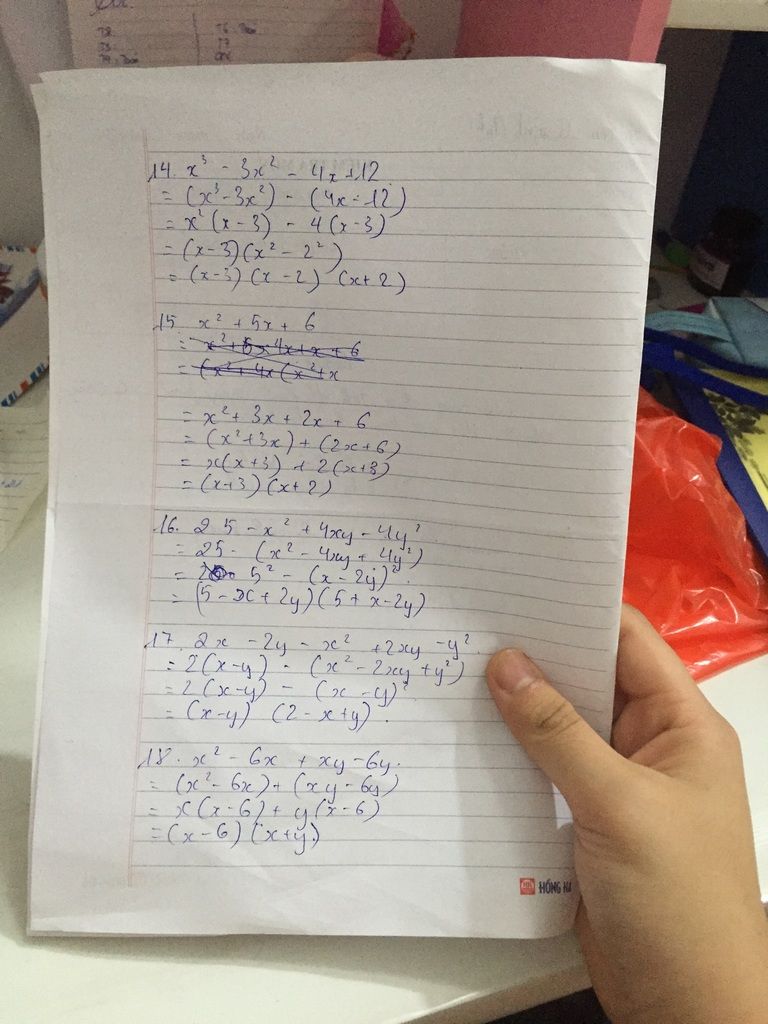 14. x³ - 3x² - 4x + 12
= (x³ - 3x²) - (4x - 12)
= x²(x - 3) - 4(x - 3)
= (x - 3)(x² - 2²)
= (x - 3)(x - 2) (x + 2)
15 x² + 5x + 6
= x² + 3x + 2x + 6
= (x² + 3x) + (2x + 6)
= x(x + 3) + 2(x + 3)
= (x + 3)(x + 2)
16. 25 - x² + 4xy - 4y²
= 25 - (x² - 4xy + 4y²)
= 5² - (x - 2y)².
= (5 - x + 2y)(5 + x - 2y)
17. 2x - 2y - x² + 2xy - y².
= 2(x - y) - (x² - 2xy + y²)
= 2(x - y) - (x - y)²
= (x - y) (2 - x + y).
18. x² - 6x + xy - 6y.
= (x² - 6x) + (xy - 6y)
= x(x - 6) + y(x - 6)
= (x - 6)(x + y)
HỒNG HÀ